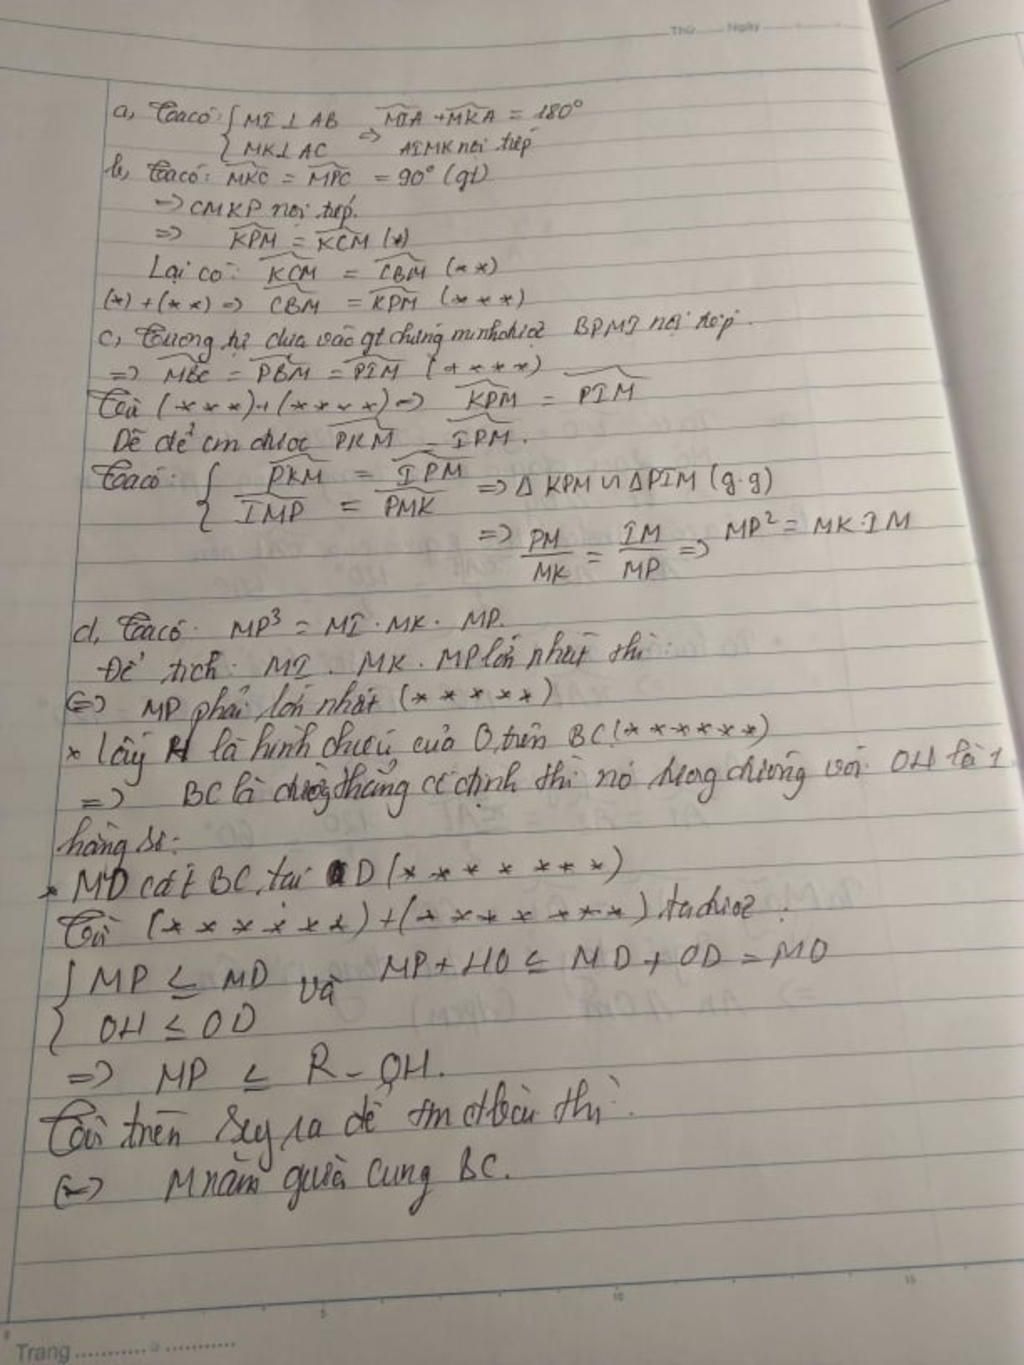 Thứ Ngày
a, Ta có: { MI ⊥ AB => MIA + MKA = 180°
MK ⊥ AC AIMK nội tiếp
b, Ta có: MKC = MPC = 90° (gt)
=> CMKP nội tiếp.
=> KPM = KCM (*)
Lại có: KCM = CBM (**)
(*) + (**) => CBM = KPM (***)
c, Tương tự dựa vào gt chứng minh được BPMI nội tiếp.
=> MBC = PBM = PIM (****)
Từ (***) + (****) => KPM = PIM
Dễ để cm được PKM = IPM.
Ta có: { PKM = IPM => Δ KPM ∽ ΔPIM (g.g)
IMP = PMK
=> PM/MK = IM/MP => MP² = MK.IM
d, Ta có: MP³ = MI . MK . MP.
Để tích: MI . MK . MP lớn nhất thì:
<=> MP phải lớn nhất (*****)
* Lấy H là hình chiếu của O, trên BC (******)
=> BC là đường thẳng cố định thì nó tương đương với OH là 1
hằng số:
* MO cắt BC, tại D (*******)
Từ (******) + (*******) ta được:
{ MP ≤ MD và MP + HO ≤ MD + OD = MO
OH ≤ OD
=> MP ≤ R - OH.
Từ trên suy ra để tm đbài thì:
<=> M nằm giữa cung BC.
5 10 15
Trang